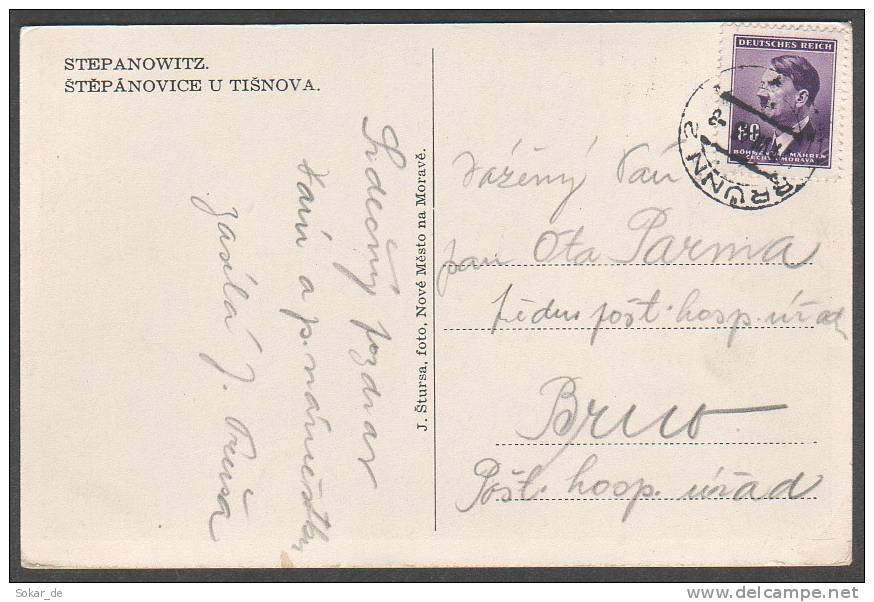 STEPANOWITZ.
ŠTĚPÁNOVICE U TIŠNOVA.
Srdečný pozdrav
Vám a p. náměstku
zasílá J. Průša
J. Štursa, foto, Nové Město na Moravě.
DEUTSCHES REICH
60
BÖHMEN MÄHREN
ČECHY MORAVA
BRÜNN 2
Vážený Pán
pan Ota Parma
pošt. hosp. úřad
Brno
Pošt. hosp. úřad
Sokar_de
www.delcampe.net